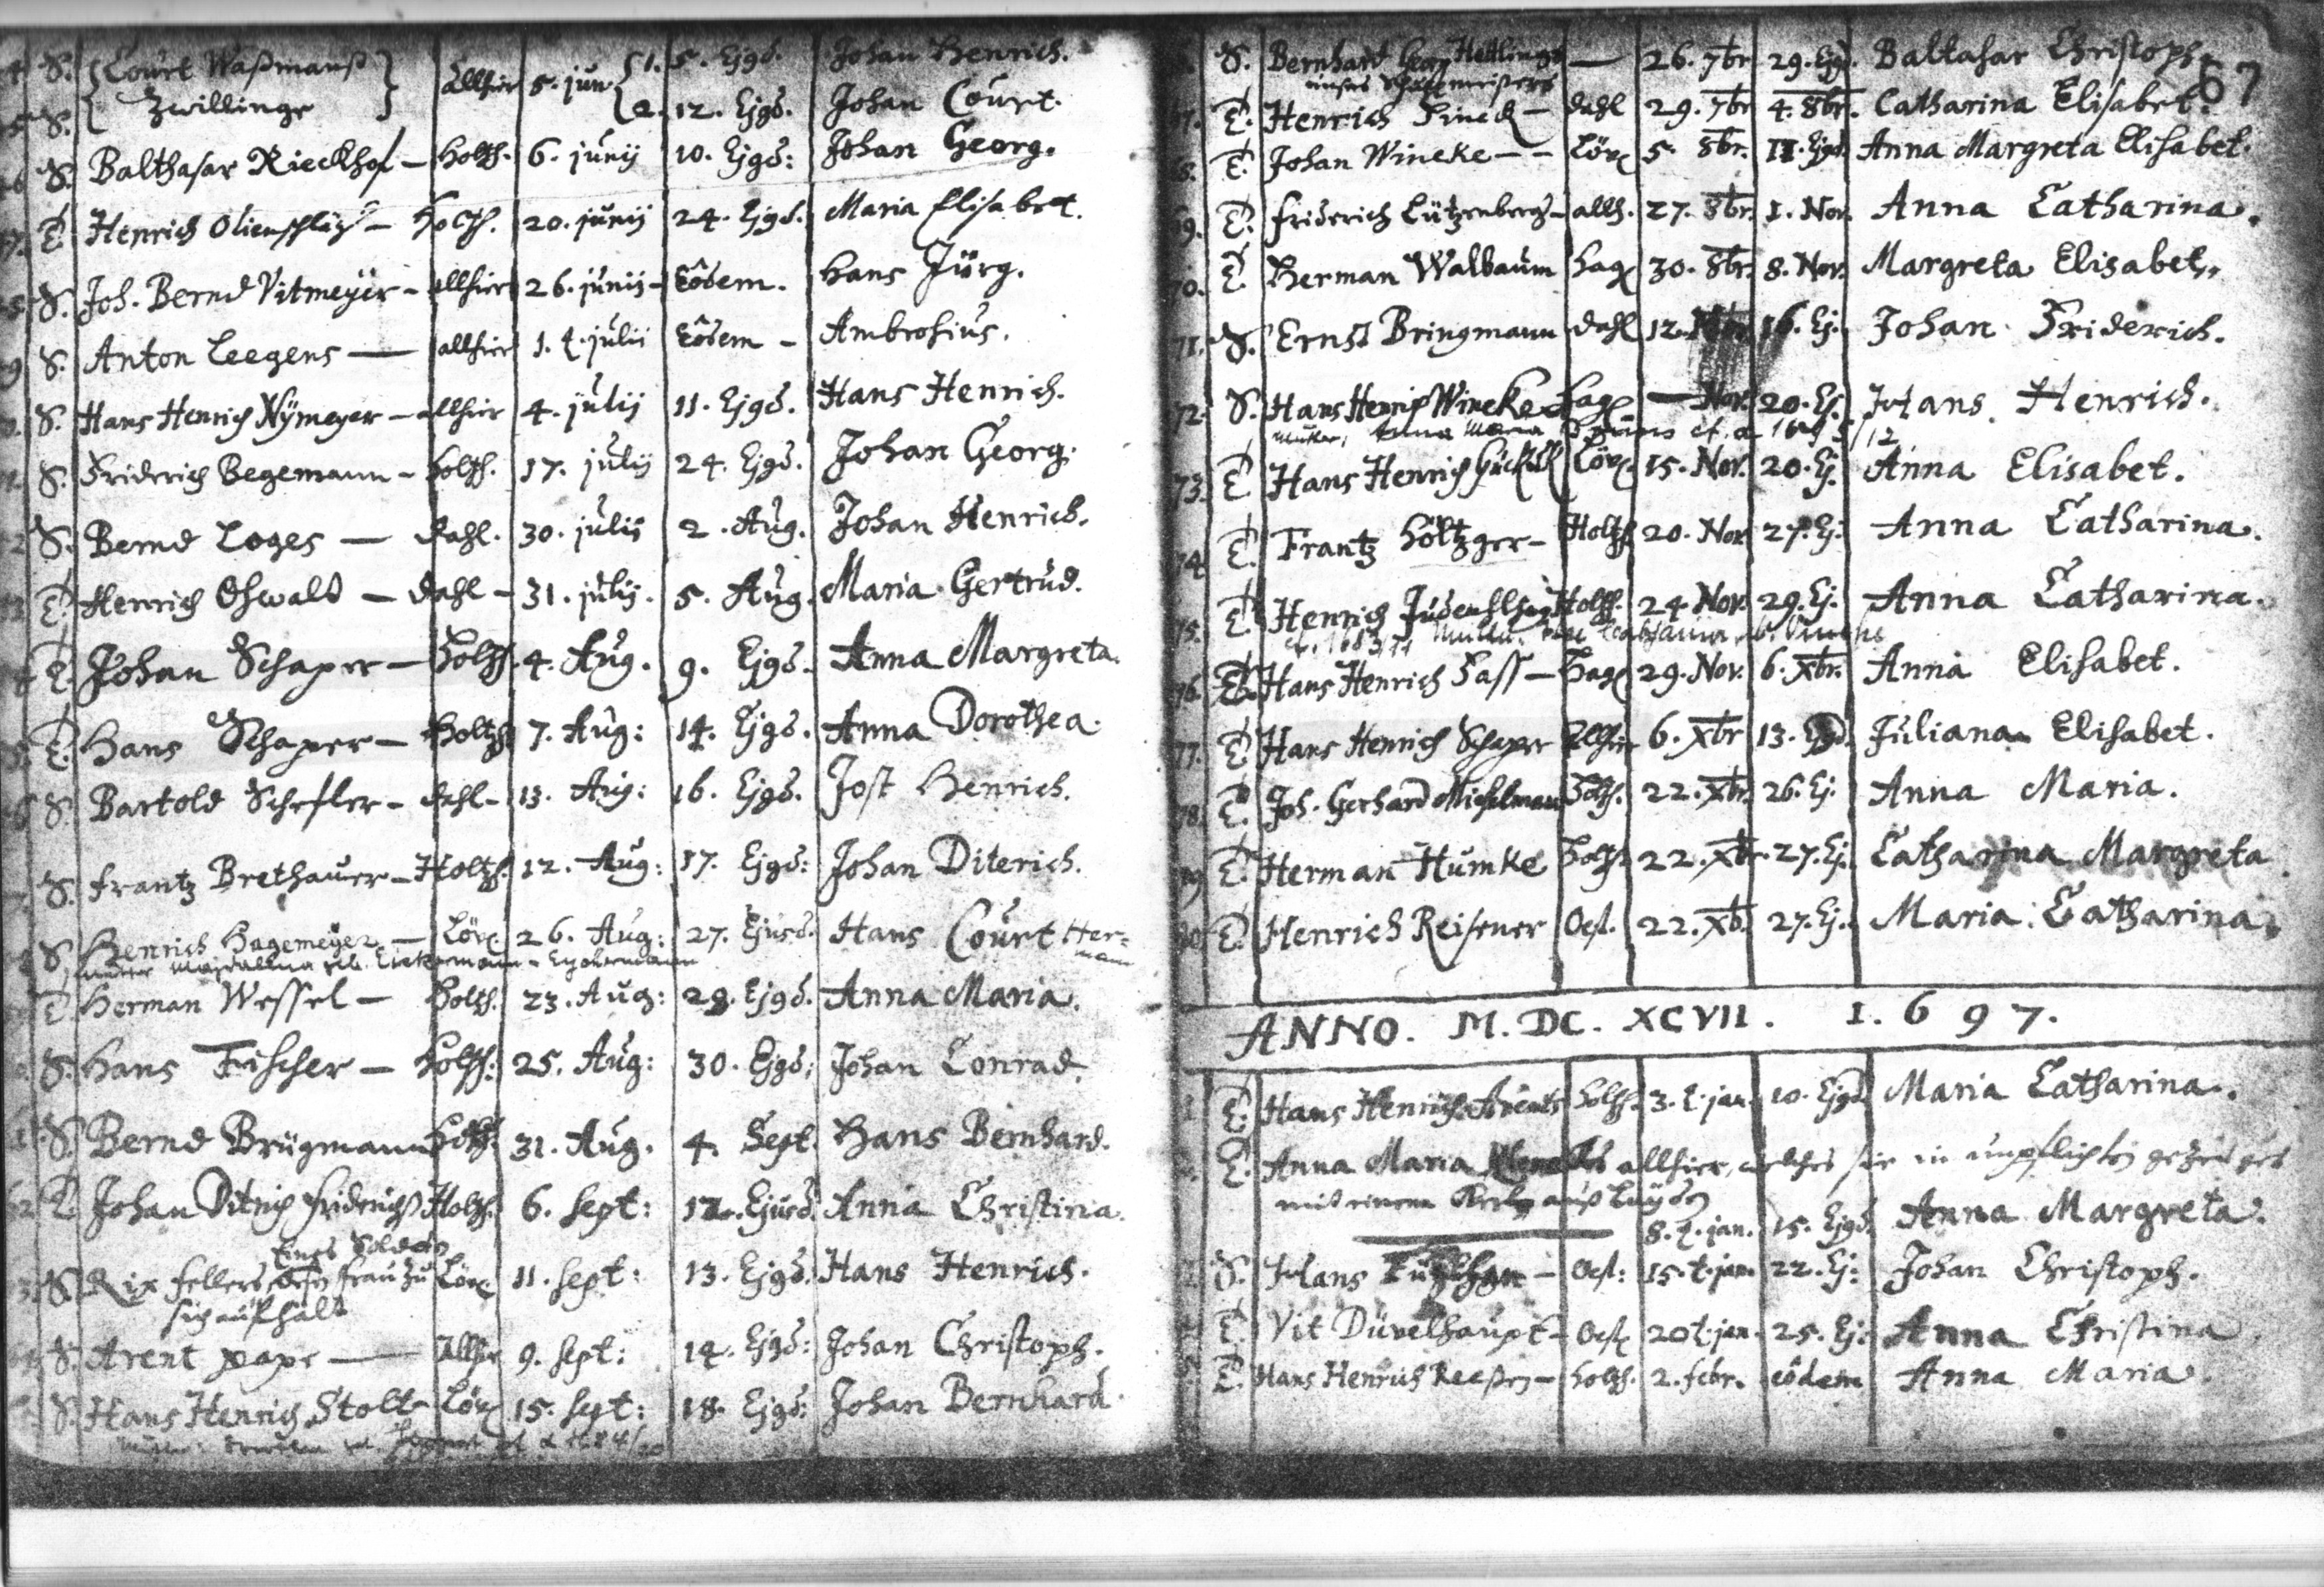 S. Court Waßmanß allhier 5. jun 1. 5. Ejgd. Johan Henrich.
S. Zwillinge 2. 12. Ejgd. Johan Court.
S. Balthasar Rieckhof – Holtzh. 6. junij 10. Ejgd: Johan Georg.
T. Henrich Olienschläg – Holtzh. 20. junij 24. Ejgd. Maria Elisabet.
S. Joh. Bernd Vitmeyer – allhier 26. junij – Eôdem. Hans Jürg.
S. Anton Leegens — allhier 1. t. julij Eôdem – Ambrosius.
S. Hans Henrich Nÿmeyer – allhier 4. julij 11. Ejgd. Hans Henrich.
S. Friderich Begemann – Holtzh. 17. julij 24. Ejgd. Johan Georg.
S. Bernd Loges — Dahl. 30. julij 2. Aug. Johan Henrich.
T. Henrich Oswald — Dahl – 31. julij. 5. Aug. Maria Gertrud.
T. Johan Schaper — Holtzh. 4. Aug. 9. Ejgd. Anna Margreta.
T. Hans Schaper — Holtzh 7. Aug: 14. Ejgd. Anna Dorothea.
S. Bartold Schefler – Dahl – 13. Aug: 16. Ejgd. Jost Henrich.
S. Frantz Brethauer – Holtzh. 12. Aug: 17. Ejgd: Johan Diterich.
S. Henrich Hagemeyer — Löv. 26. Aug: 27. Ejusd. Hans Court Her=
mann
Mutter Magdallena
T. Herman Wessel — Holtzh. 23. Aug: 29. Ejgd. Anna Maria.
S. Hans Fischer — Holtzh: 25. Aug: 30. Ejgd: Johan Conrad.
S. Bernd Brügmann Holtzh. 31. Aug. 4. Sept. Hans Bernhard.
T. Johan Ditrich Friderichß Holtzh. 6. sept: 12. Ejusd. Anna Christina.
Eines Soldaten
S. Rix Fellers, deßen Frau zu Löv. 11. sept: 13. Ejgd. Hans Henrich.
sich aufhält
S. Arent Pape — Allhier 9. sept: 14. Ejgd: Johan Christoph.
S. Hans Henrich Stolt Löv 15. sept: 18. Ejgd: Johan Bernhard.
67
S. Bernhard Georg Hettlings — 26. 7br 29. Ejgd. Baltasar Christoph.
T. Henrich Finck – Dahl 29. 7br 4. 8br. Catharina Elisabet.
T. Johan Wineke – – Löv 5. 8br. 11. Ejgd. Anna Margreta Elisabet.
T. Friderich Lützenberg – allh. 27. 8br. 1. Nov. Anna Catharina.
70. T. Herman Walbaum Hag 30. 8br. 8. Nov. Margreta Elisabet.
71. S. Ernst Bringmann Dahl 12. Nov. 16. Ej. Johan Friderich.
72. S. Hans Henrich Wineke Hag – — Nov. 20. Ej. Hans Henrich.
Mutter, Anna Maria
73. T. Hans Henrich Löv. 15. Nov. 20. Ej. Anna Elisabet.
74 T. Frantz Höltzger – Holtzh 20. Nov. 27. Ej. Anna Catharina.
75. T. Henrich Holtzh. 24. Nov. 29. Ej. Anna Catharina.
76. T. Hans Henrich Fass — Hag 29. Nov. 6. Xbr. Anna Elisabet.
77. T. Hans Henrich Schaper Allhier 6. Xbr 13. Ejgd. Juliana Elisabet.
78. T. Joh. Gerhard Michelman Holtzh. 22. Xbr. 26. Ej. Anna Maria.
T. Herman Humke Holtzh. 22. Xbr. 27. Ej. Catharina Margreta
80 T. Henrich Reisener Oest. 22. Xb. 27. Ej. Maria Catharina.
ANNO. M. DC. XCVII. 1. 6 9 7.
1 T. Hans Henrich Arents Holtzh. 3. t. jan. 10. Ejgd. Maria Catharina.
T. Anna Maria allhier, welches sie in unpflichten gezeuget
mit einem Kerl auß
8. t. jan. 15. Ejgd. Anna Margreta.
S. Hans – Oest: 15. t. jan. 22. Ej: Johan Christoph.
T. Vit Düvelhaupt – Oest 20 t. jan. 25. Ej: Anna Christina
5. T. Hans Henrich Reeßen – Holtzh. 2. febr. eôdem Anna Maria.